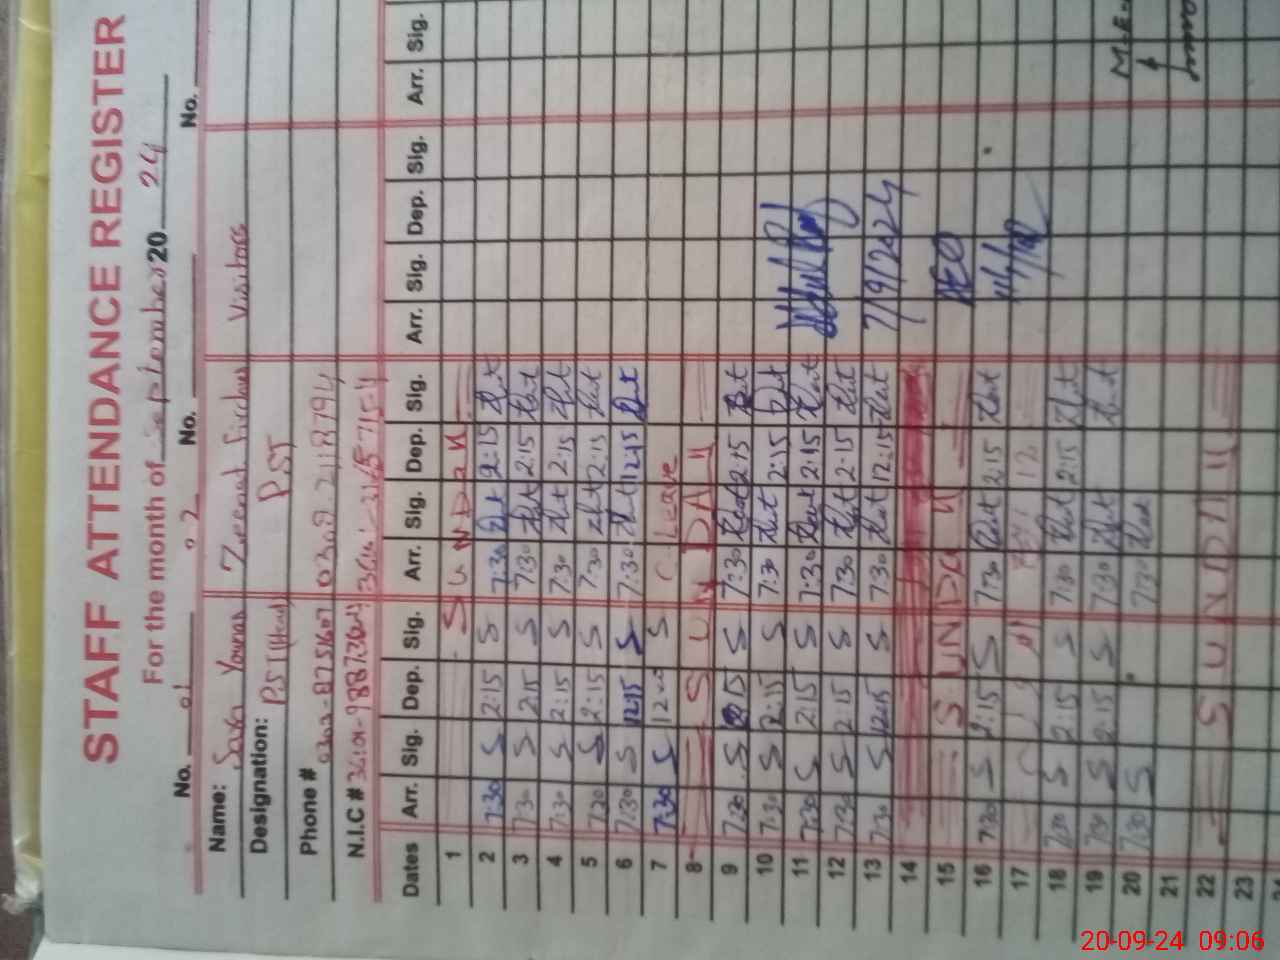 STAFF ATTENDANCE REGISTER
For the month of September 20 24
No. 01 No. 02 No.
Name: Younas Zeenat Firdous Visitors
Designation: PST (Head) PST
Phone # 0303-8758607 0308 2118794
N.I.C #
Dates Arr. Sig. Dep. Sig. Arr. Sig. Dep. Sig. Arr. Sig. Dep. Sig. Arr. Sig.
1 SUNDAY
2 7:30 S 2:15 S 7:30 2:15
3 7:30 S 2:15 S 7:30 2:15
4 7:30 S 2:15 S 7:30 2:15
5 7:30 S 2:15 S 7:30 2:15
6 7:30 S 12:15 S 7:30 12:15
7 7:30 S 12:00 S C. Leave
8 SUNDAY
9 7:30 S 2:15 S 7:30 2:15
10 7:30 S 2:15 S 7:30 2:15
11 7:30 S 2:15 S 7:30 2:15
12 7:30 S 2:15 S 7:30 2:15
13 7:30 S 12:15 S 7:30 12:15 7/9/2024
14
15 SUNDAY AEO
16 7:30 S 2:15 S 7:30 2:15
17 12
18 7:30 S 2:15 S 7:30 2:15
19 7:30 S 2:15 S 7:30
20 7:30 S 7:30 M.E.
21
22 SUNDAY
23
24
20-09-24 09:06